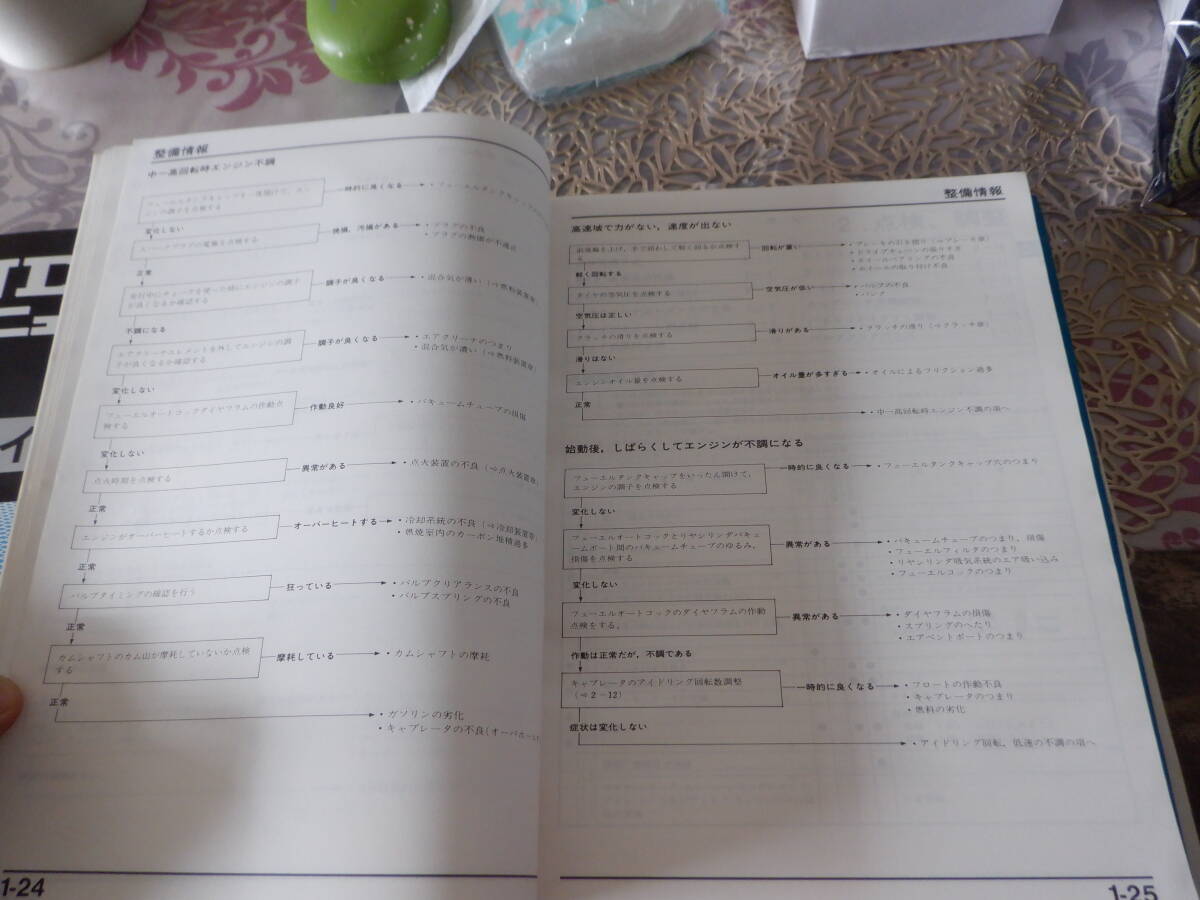 整備情報
中ー高回転時エンジン不調
フューエルタンクキャップを一度開けて、エン
ジンの調子を点検する
一時的に良くなる
変化しない
スパークプラグの電極を点検する
焼損、汚損がある
・プラグの不良
・プラグの熱価が不適正
正常
走行中にチョークを使った時にエンジンの調子
が良くなるか確認する
調子が良くなる
・混合気が薄い（⇨燃料装置章）
不調になる
エアクリーナエレメントを外してエンジンの調
子が良くなるか確認する
調子が良くなる
・エアクリーナのつまり
・混合気が濃い（⇨燃料装置章）
変化しない
フューエルオートコックダイヤフラムの作動点
検する
作動良好
・バキュームチューブの損傷
変化しない
点火時期を点検する
異常がある
・点火装置の不良（⇨点火装置章）
正常
エンジンがオーバーヒートするか点検する
オーバーヒートする
・冷却系統の不良（⇨冷却装置章）
・燃焼室内のカーボン堆積過多
正常
バルブタイミングの確認を行う
狂っている
・バルブクリアランスの不良
・バルブスプリングの不良
正常
カムシャフトのカム山が摩耗していないか点検
する
摩耗している
・カムシャフトの摩耗
正常
・ガソリンの劣化
・キャブレータの不良（オーバホール
1-24
整備情報
高速域で力がない，速度が出ない
前後輪を上げ、手で回かして軽く回るか点検す
る
回転が重い
・ブレーキの引き摺り（⇨ブレーキ章）
・ドライブチェーンの張りすぎ
・ホイールベアリングの不良
・ホイールの取り付け不良
軽く回転する
タイヤの空気圧を点検する
空気圧が低い
・バルブの不良
・パンク
空気圧は正しい
クラッチの滑りを点検する
滑りがある
・クラッチの滑り（⇨クラッチ章）
滑りはない
エンジンオイル量を点検する
オイル量が多すぎる
・オイルによるフリクション過多
正常
・中ー高回転時エンジン不調の項へ
始動後，しばらくしてエンジンが不調になる
フューエルタンクキャップをいったん開けて，
エンジンの調子を点検する
一時的に良くなる
・フューエルタンクキャップ穴のつまり
変化しない
フューエルオートコックとリヤシリンダバキュ
ームポート間のバキュームチューブのゆるみ，
損傷を点検する
異常がある
・バキュームチューブのつまり，損傷
・フューエルフィルタのつまり
・リヤシリンダ吸気系統のエア吸い込み
・フューエルコックのつまり
変化しない
フューエルオートコックのダイヤフラムの作動
点検をする。
異常がある
・ダイヤフラムの損傷
・スプリングのへたり
・エアベントポートのつまり
作動は正常だが，不調である
キャブレータのアイドリング回転数調整
（⇨２－12）
一時的に良くなる
・フロートの作動不良
・キャブレータのつまり
・燃料の劣化
症状は変化しない
・アイドリング回転，低速の不調の項へ
1-25